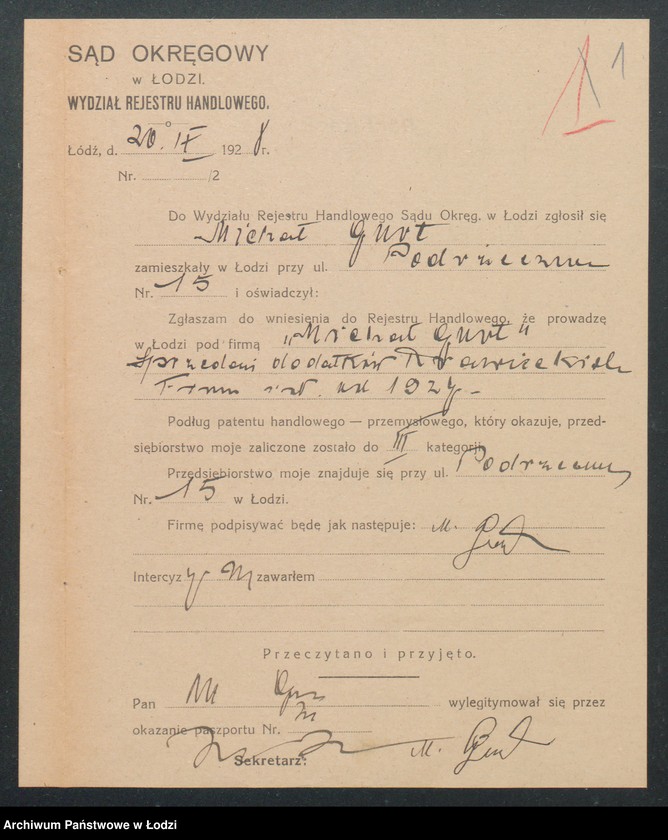 SĄD OKRĘGOWY
w ŁODZI.
WYDZIAŁ REJESTRU HANDLOWEGO.
1 1
Łódź, d. 20. IX 1928 r.
Nr. /2
Do Wydziału Rejestru Handlowego Sądu Okręg. w Łodzi zgłosił się
Michał Gurt
zamieszkały w Łodzi przy ul. Podrzeczna
Nr. 15 i oświadczył:
Zgłaszam do wniesienia do Rejestru Handlowego, że prowadzę
w Łodzi pod firmą „Michał Gurt"
Sprzedaż dodatków krawieckich
Firma istn. od 1927
Podług patentu handlowego — przemysłowego, który okazuje, przed-
siębiorstwo moje zaliczone zostało do III kategorji.
Przedsiębiorstwo moje znajduje się przy ul. Podrzecznej
Nr. 15 w Łodzi.
Firmę podpisywać będe jak następuje: M. Gurt
Intercyzy nie zawarłem
Przeczytano i przyjęto.
Pan M Gurt wylegitymował się przez
okazanie paszportu Nr.
Sekretarz: M. Gurt
Archiwum Państwowe w Łodzi